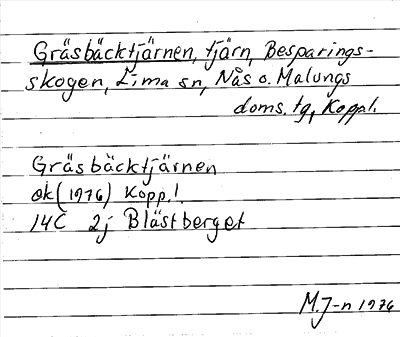 Gräsbäcktjärnen, tjärn, Besparings-
skogen, Lima sn, Nås o. Malungs
doms. tg, Koppl.
Gräsbäcktjärnen
ek (1976) Kopp.l.
14C 2j Blästberget
M.J-n 1976